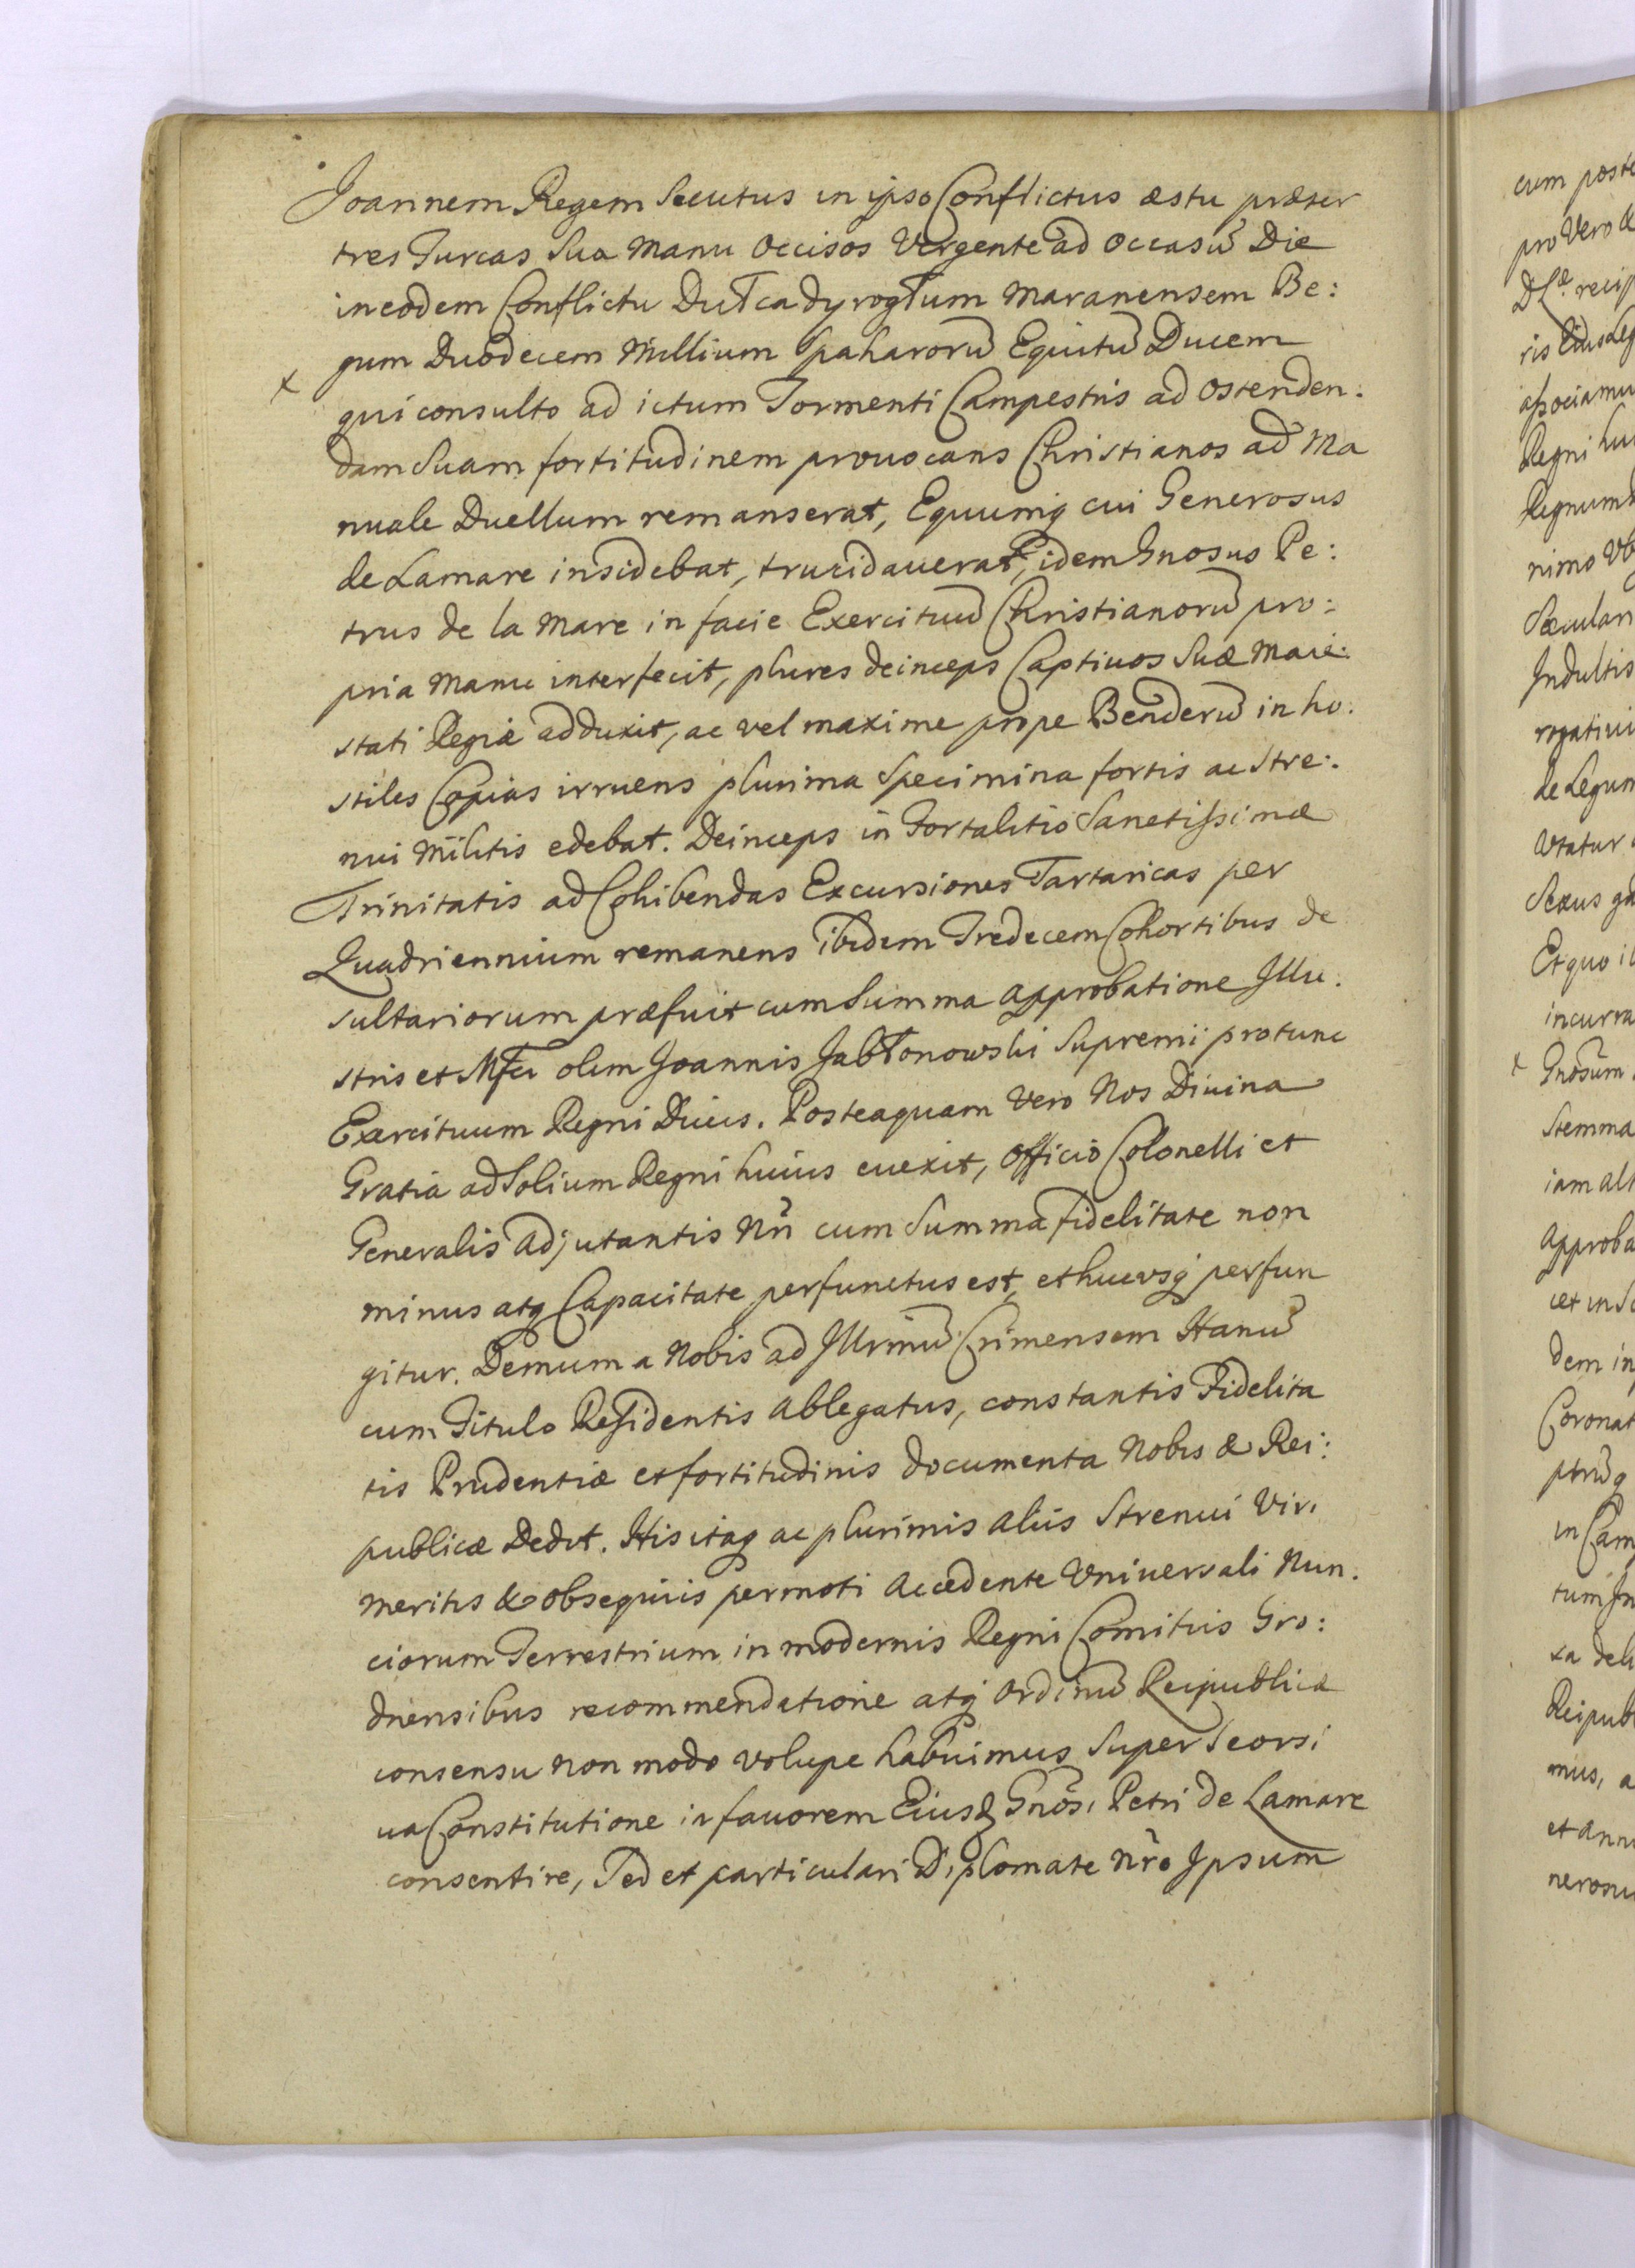 Joannem Regem Secutus in ipso Conflictus æstu præter
tres Turcas Sua Manu Occisos Vergente ad Occasū Die
in eodem Conflictu Dułcadyrogłum Maranensem Be:
gum Duodecem Millium Spaharorū Equitū Ducem
x qui consulto ad ictum Tormenti Campestris ad Ostenden:
dam Suam fortitudinem prouocans Christianos ad Ma
nuale Duellum remanserat, Equumq cui Generosus
de Lamare insidebat, trucidauerat, idem Gnosus Pe:
trus de la Mare in facie Exercituū Christianorū pro:
pria Manu interfecit, plures deinceps Captiuos Suæ Maie:
stati Regiæ adduxit, ac vel maxime prope Benderū in ho:
stiles Copias irruens plurima Specimina fortis ac Stre:
nui Militis edebat. Deinceps in Fortalitio Sanctissimæ
Trinitatis ad Cohibendas Excursiones Tartaricas per
Quadriennium remanens ibidem Tredecem Cohortibus de
sultariorum præfuit cum Summa Approbatione Illu:
stris et Mfci olim Joannis Jabłonowski Supremi protunc
Exercituum Regni Ducis. Posteaquam Vero Nos Diuina
Gratia ad Solium Regni huius euexit, Officio Colonelli et
Generalis Adjutantis Nri cum Summa fidelitate non
minus atq Capacitate perfunctus est, et hucusq perfun
gitur. Demum a Nobis ad Illrmū Crimensem Hanū
cum Titulo Residentis Ablegatus, constantis Fidelita
tis Prudentiæ et fortitudinis documenta Nobis & Rei:
publicæ Dedit. His itaq ac plurimis aliis Strenui Viri
Meritis & Obsequiis permoti Accedente Vniuersali Nun:
ciorum Terrestrium in modernis Regni Comitiis Gro:
dnensibus recommendatione atq Ordinū Reipublicæ
consensu non modo volupe habuimus Super Seorsi
ua Constitutione in fauorem Eiusd Gnosi Petri de Lamare
consentire, Sed et particulari Diplomate Nro Ipsum
cum poste
pro Vero &
recip
ris Eius Leg
associamu
Regni hu
Regnum
nimo Vb
Secular
Indultis
rogatiui
de Legum
Vtatur
Sexus
Et quo i
incurra
x Gnosum
Stemma
iam alt
Approba
cet in
dem in
Coronat
in Cam
tum In
xa deli
Reipub
mus, a
et Ann
nerosu